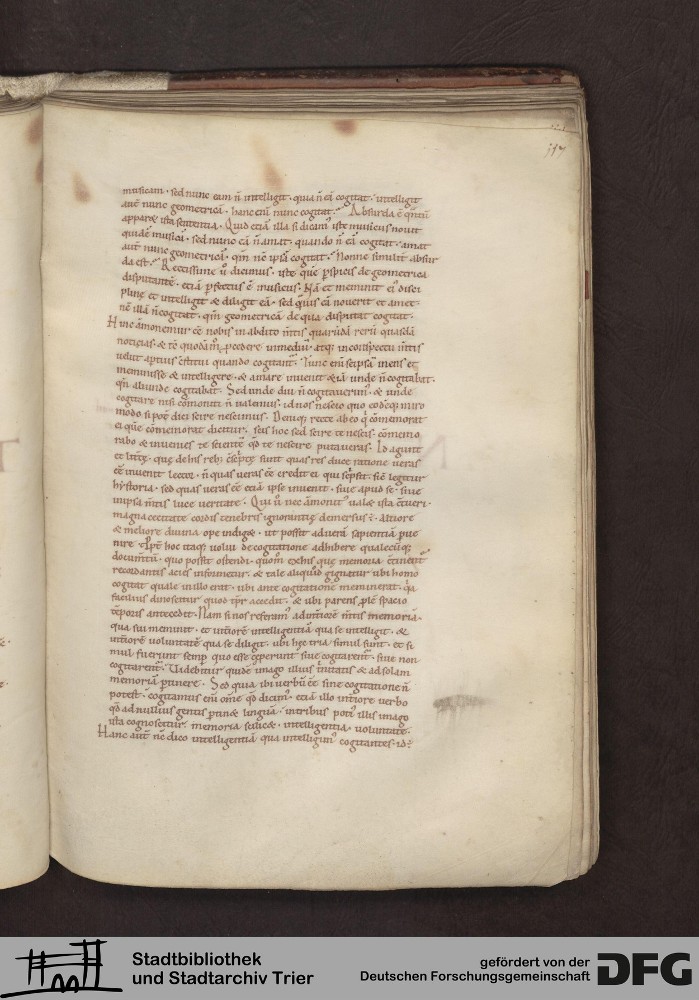 117
musicam · sed nunc eam ñ intelligit · quia ñ eā cogitat · intelligit
aut̄ nunc geometricā · hanc eni̅ nunc cogitat · Absurda ē q̄ntū
apparet ista sententia · Quid etiā illa si dicam̉ iste musicus novit
quidē musicā · sed nunc eā ñ amat · quando ñ eā cogitat · amat
aut̄ nunc geometricā · qm̄ nc̄ ipsā cogitat · Nonne similit̄ absur
da est · Rectissime ū dicimus · iste quē pspicis de geometrica
disputantē · etiā pfectus ē musicus · Nā et meminit eỉ disci
plinę et intelligit & diligit eā · sed quīs eā noverit et amet ·
nc̄ illā ñ cogitat · qm̄ geometricā de qua disputat cogitat ·
Hinc āmonemur ēē nobis in abdito m̄tis quarūdā rerū quasdā
noticias · & tc̄ quodā m̊ pcedere in mediū · atq; in conspectu m̄tis
velut aptius c̄stitui quando cogitant̄ · Tunc eni̅ se ipsā mens et
meminisse & intelligere · & amare invenit etiā unde ñ cogitabat ·
qn̄ aliunde cogitabat · Sed unde diu ñ cogitaverim̉ · & unde
cogitare nisi cōmoniti ñ valemus · id nos nescio quo eodēq; miro
modo si pot̄ dici scire nescimus · Deniq; recte ab eo q̇ cōmemorat
ei quē cōmemorat dicitur · scis hoc sed scire te nescis · cōmemo
rabo & invenies te scientē qd̄ te nescire putaveras · Id agunt
et littę · quę de his reb; c̄scptę sunt quas res duce ratione veras
ēē invenit lector · ñ quas veras ēē credit ei qui scpsit · sic̄ legitur
hystoria · sed quas veras ēē etiā ipse invenit · sive apud se · sive
in ipsa m̄tis luce veritate · Qui ū nec āmonit̉ valet ista c̄tueri ·
magna cecitate cordis tenebris ignorantię demersus ÷ · altiore
& meliore divina ope indiget · ut possit ad verā sapientiā pve
nire · Ppt̄ hoc itaq; volui de cogitatione adhibere qualecūq;
documtū · quo possit ostendi · quom̊ ex his quę memoria c̄tinent̄
recordantis acies informetur · & tale aliquid gignatur ubi homo
cogitat quale in illo erat · ubi ante cogitationē meminerat · q̇a
facilius dinoscitur quod tp̄r accedit · & ubi parens ple spacio
tēporis antecedit · Nam si nos referam̉ ad int̄iorē m̄tis memoriā ·
qua sui meminit · et int̄iorē intelligentiā qua se intelligit · &
int̄iorē voluntatē qua se diligit · ubi hęc tria simul sunt · et si
mul fuerunt semp quo esse cęperunt sive cogitarent̄ · sive non
cogitarent̄ · Videbitur quidē imago illius t̄nitatis & ad solam
memoriā ptinere · Sed quia ibi verbū ēē sine cogitatione ñ
potest · cogitamus eni̅ om̄e qd̄ dicim̉ · etiā illo int̄iore verbo
qd̄ ad nullius gentis ptinet linguā · in tribus potỉ illis imago
ista cognoscitur · memoria scilicet · intelligentia · voluntate ·
Hanc aut̄ nc̄ dico intelligentiā qua intelligim̉ cogitantes · id÷
Stadtbibliothek
und Stadtarchiv Trier
gefördert von der
Deutschen Forschungsgemeinschaft
DFG